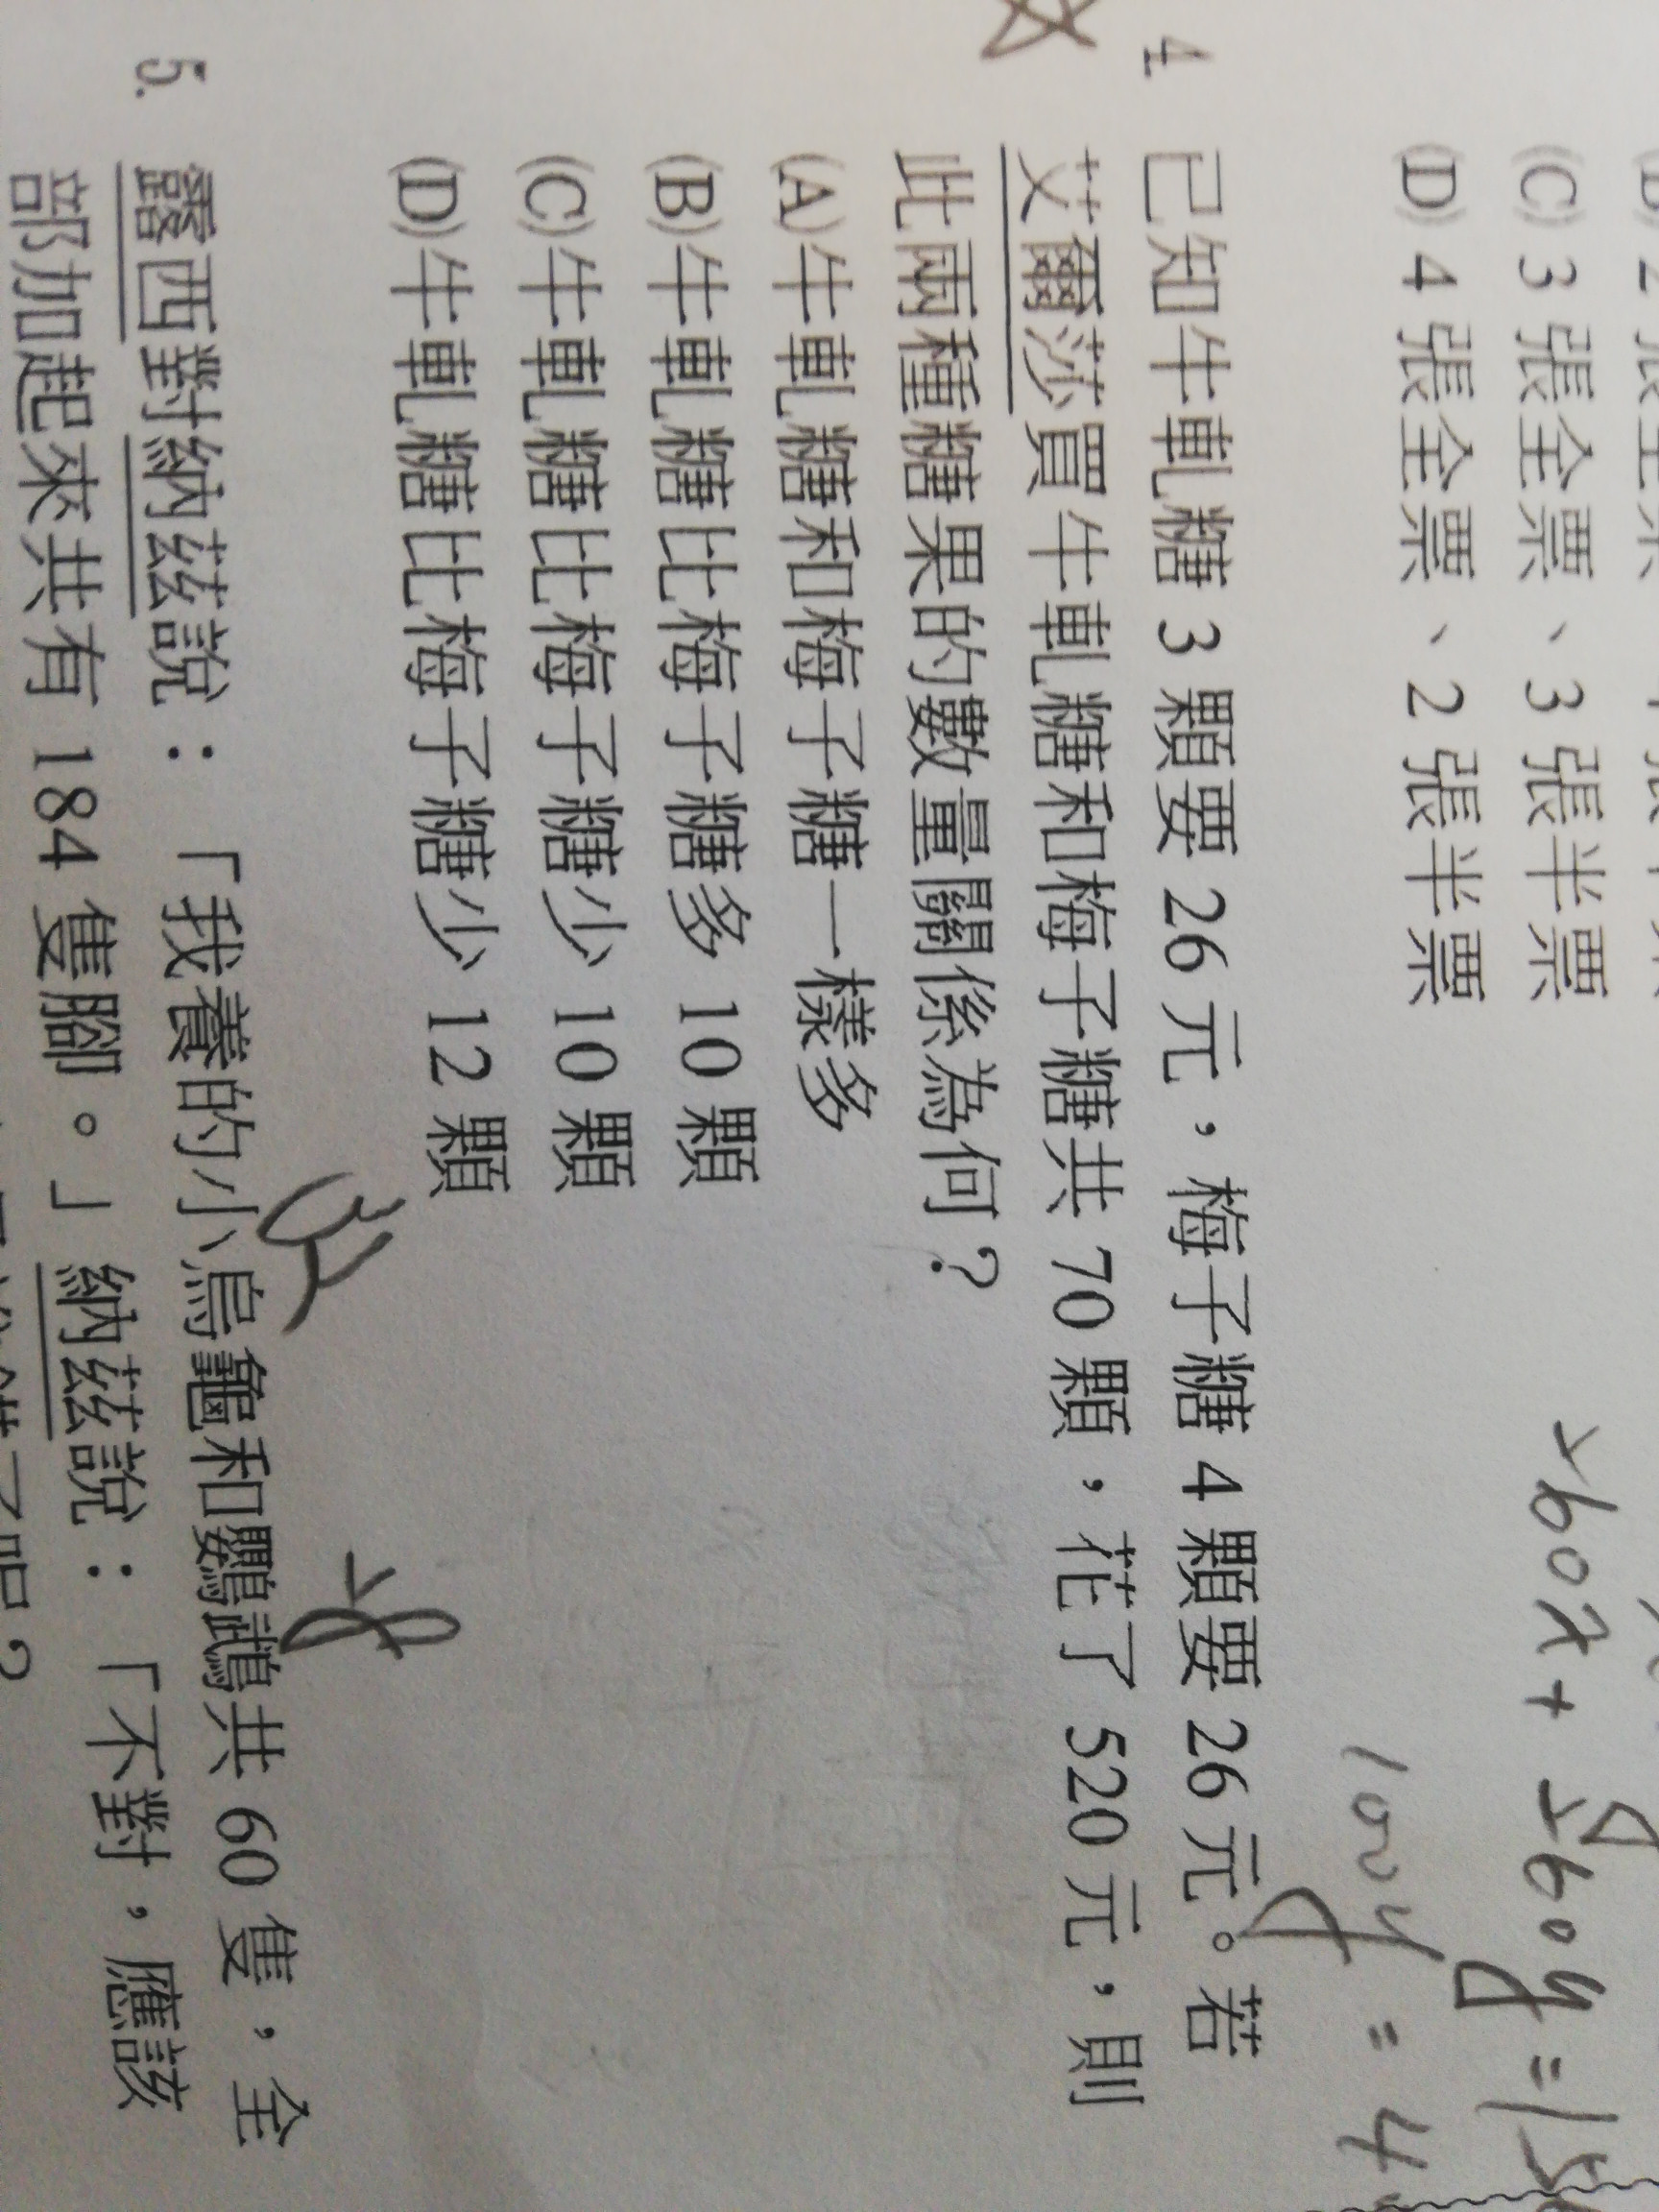 (C) 3 張全票、3 張半票
(D) 4 張全票、2 張半票
4. 已知牛軋糖 3 顆要 26 元，梅子糖 4 顆要 26 元。若
艾爾莎買牛軋糖和梅子糖共 70 顆，花了 520 元，則
此兩種糖果的數量關係為何？
(A) 牛軋糖和梅子糖一樣多
(B) 牛軋糖比梅子糖多 10 顆
(C) 牛軋糖比梅子糖少 10 顆
(D) 牛軋糖比梅子糖少 12 顆
5. 露西對納茲說：「我養的小烏龜和鸚鵡共 60 隻，全
部加起來共有 184 隻腳。」納茲說：「不對，應該